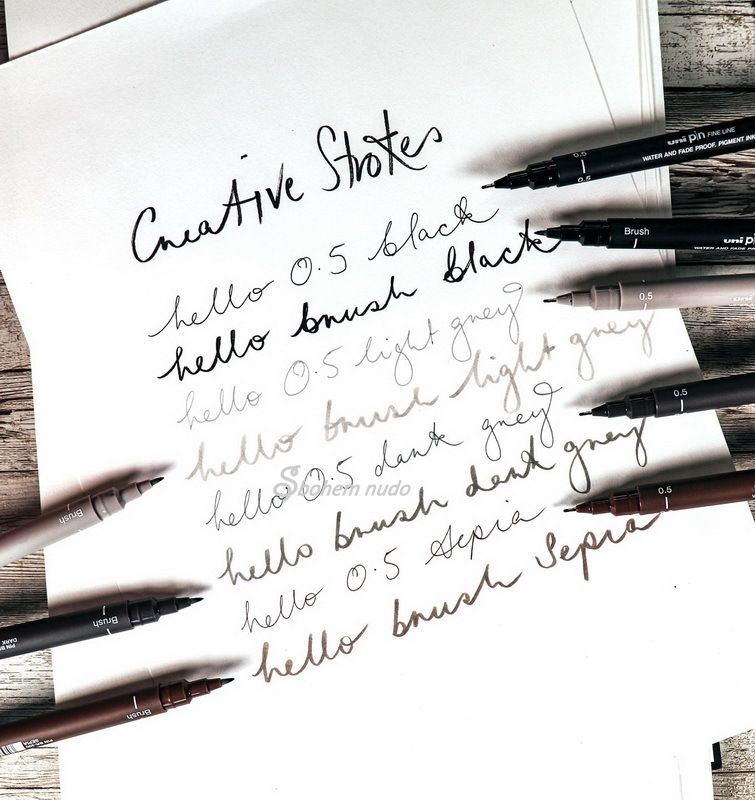 Creative Strokes
hello 0.5 black
hello brush black
hello 0.5 light grey
hello brush light grey
hello 0.5 dark grey
hello brush dark grey
hello 0.5 Sepia
hello brush Sepia
Sbohem nudo
uni pin FINE LINE
WATER AND FADE PROOF, PIGMENT INK
0.5
0.5
Brush
uni pin
WATER AND FADE PROOF
0.5
0.5
0.5
Brush
Brush
PIN BR
DARK
Brush
SEPIA